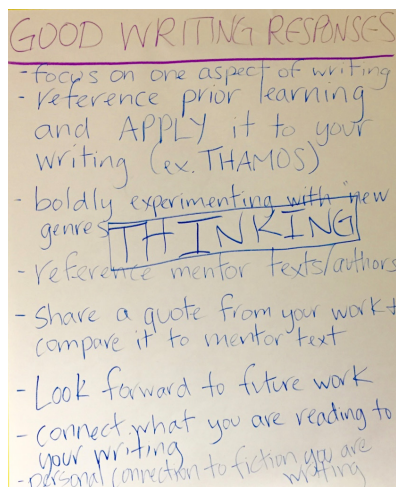 GOOD WRITING RESPONSES
- focus on one aspect of writing
- reference prior learning
and APPLY it to your
writing (ex. THAMOS)
- boldly experimenting with new
genres
THINKING
- reference mentor texts/authors
- Share a quote from your work +
compare it to mentor text
- Look forward to future work
- connect what you are reading to
your writing
- personal connection to fiction you are
writing